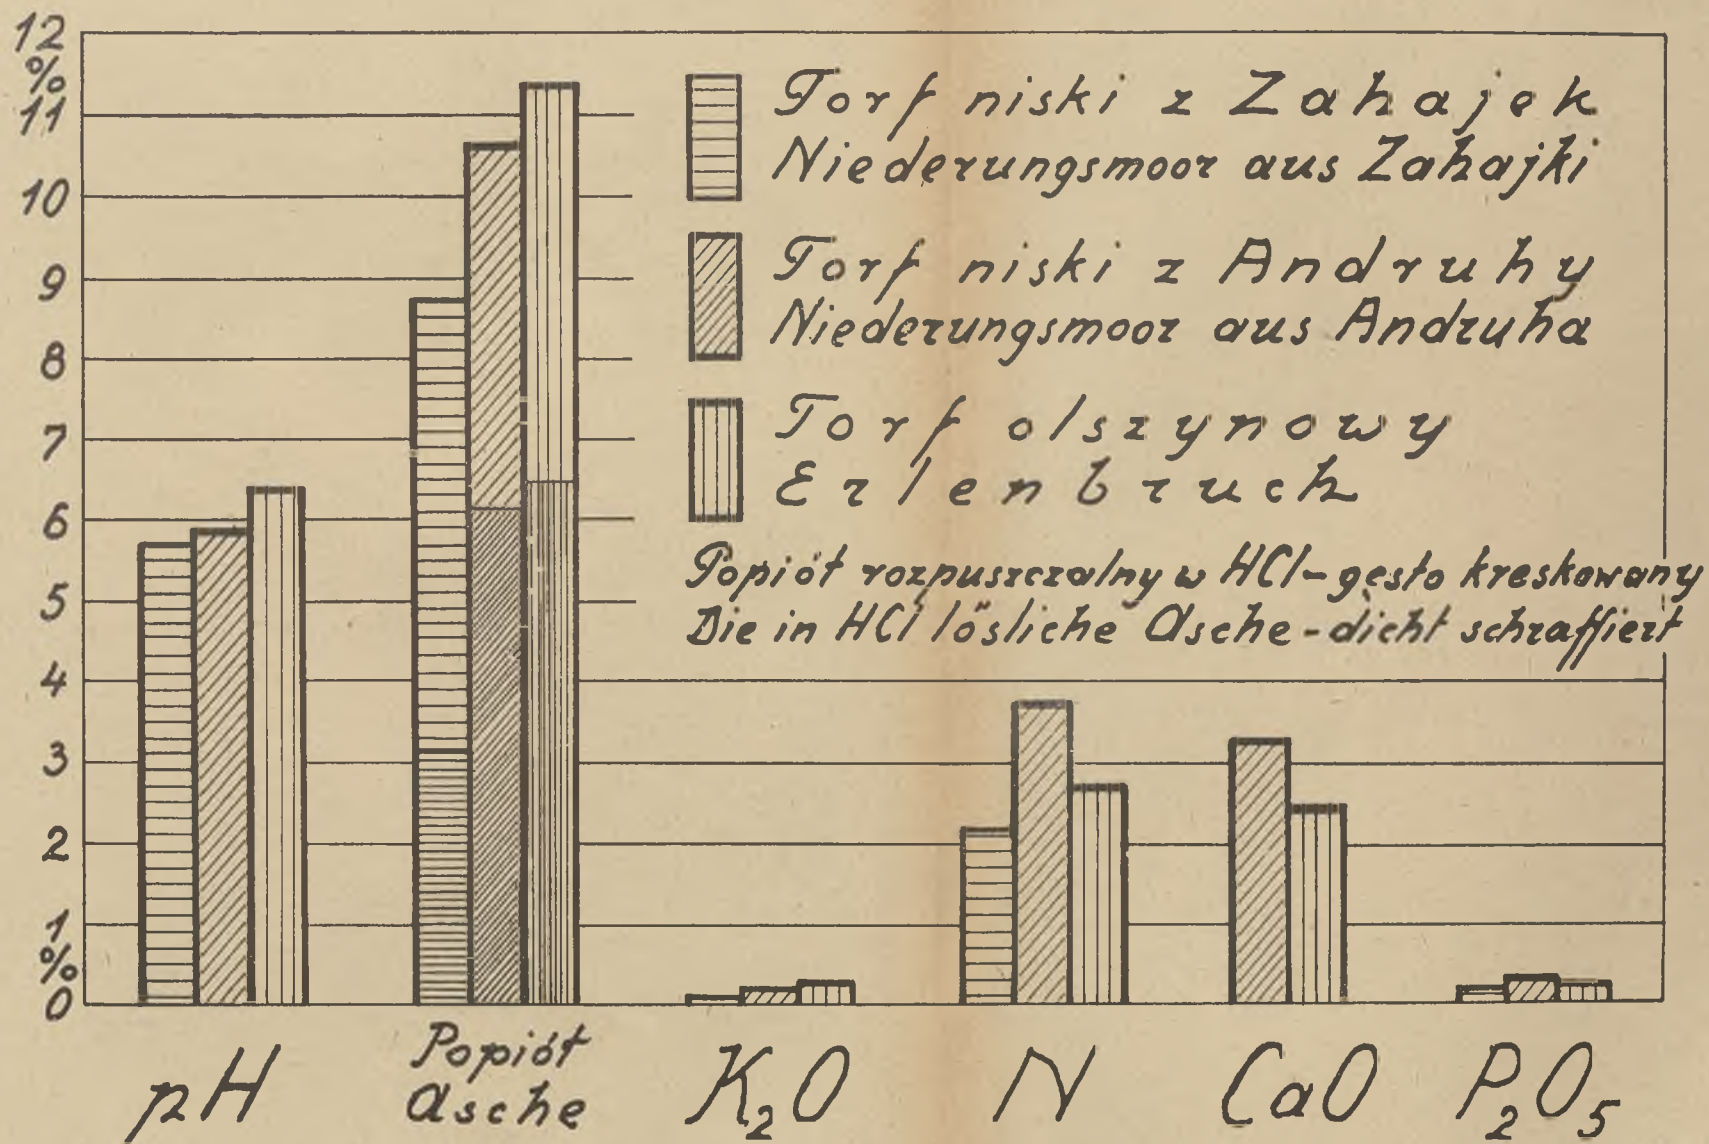 12
%
11
10
9
8
7
6
5
4
3
2
1
%
0
Torf niski z Zahajek
Niederungsmoor aus Zahajki
Torf niski z Andruhy
Niederungsmoor aus Andruha
Torf olszynowy
Erlenbruch
Popiół rozpuszczalny w HCl-gęsto kreskowany
Die in HCl lösliche Asche-dicht schraffiert
pH
Popiół
Asche
K₂O
N
CaO
P₂O₅